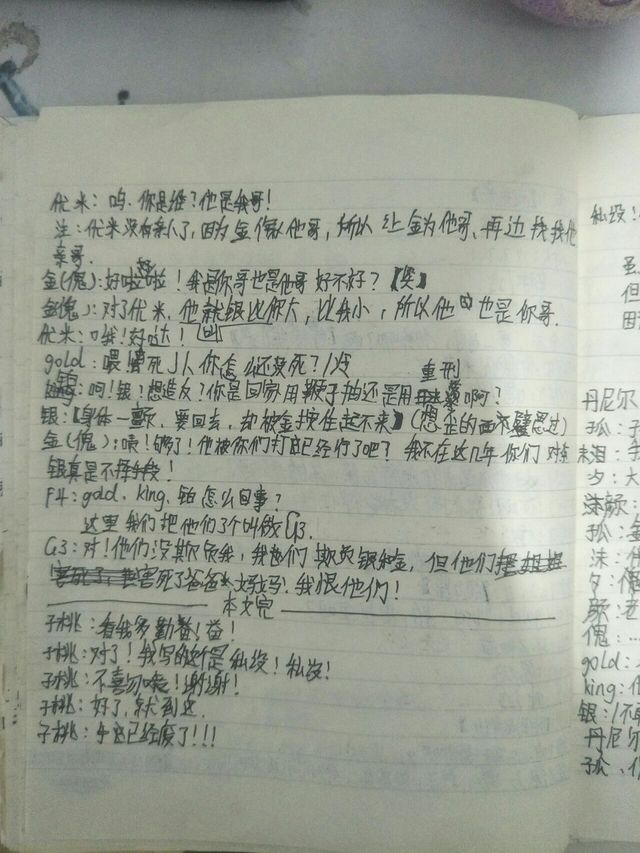 优米：呜、你是谁？他是我哥！
注：优米没有亲人了，因为金像他哥，所以让金为他哥、再边找我他
亲哥．
金(傀)：好啦好啦！我是你哥也是他哥好不好？【笑】
金(傀)：对了优米，他就银比你大，比我小，所以他也是你哥．
优米：哦！好哒！
gold：喂！死J人你怎么还没死？/冷
铂：呵！银？想造反？你是回家用鞭子抽还是用重刑啊？
银：【身体一颤，要回去，却被金按住起不来】(想
金(傀)：喂！够了！他被你们打已经行了吧？我不在这几年你们对待
银真是不择手段！
F4：gold、king、铂怎么回事？
这里我们把他们3个叫做G3．
G3：对！他们没欺负我，我们欺负银和金，但他们
害死了爸爸妈妈．我恨他们！
本文完
子桃：看我多勤奋！奋！
子桃：对了！我写的这个是私设！私设！
子桃：不喜勿喷！谢谢！
子桃：好了，就到这．
子桃：手已经废了！！！
私设！
虽
但
困
丹尼尔
夕：大
gold：
king：
银：
丹尼尔